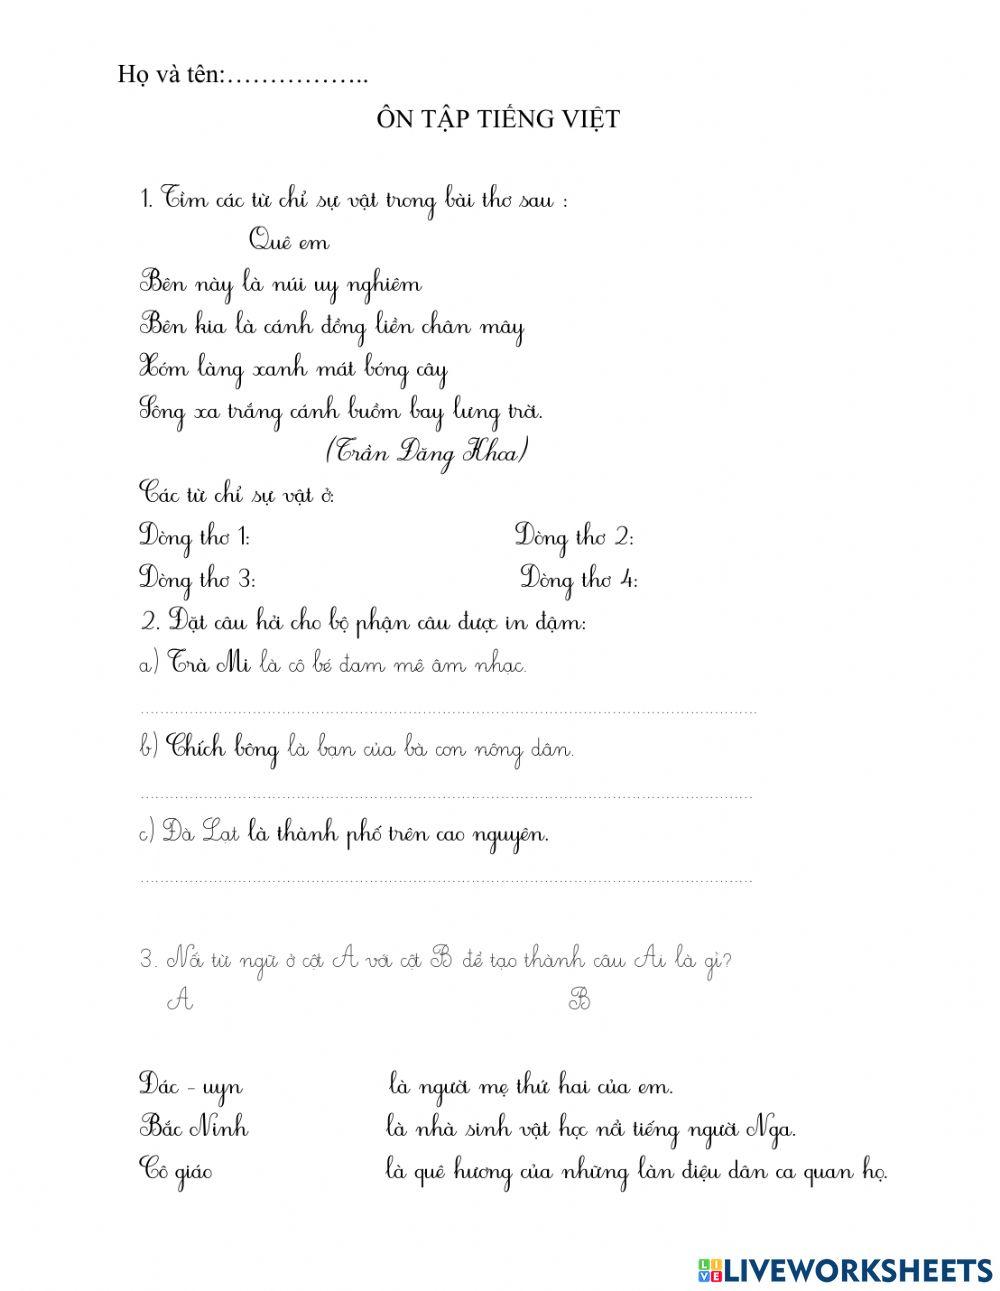 Họ và tên:……………..
ÔN TẬP TIẾNG VIỆT
1. Tìm các từ chỉ sự vật trong bài thơ sau :
Quê em
Bên này là núi uy nghiêm
Bên kia là cánh đồng liền chân mây
Xóm làng xanh mát bóng cây
Sông xa trắng cánh buồm bay lưng trời.
(Trần Đăng Khoa)
Các từ chỉ sự vật ở:
Dòng thơ 1: Dòng thơ 2:
Dòng thơ 3: Dòng thơ 4:
2. Đặt câu hỏi cho bộ phận câu được in đậm:
a) Trà Mi là cô bé đam mê âm nhạc.
b) Chích bông là bạn của bà con nông dân.
c) Đà Lạt là thành phố trên cao nguyên.
3. Nối từ ngữ ở cột A với cột B để tạo thành câu Ai là gì?
A B
Đác - uyn là người mẹ thứ hai của em.
Bắc Ninh là nhà sinh vật học nổi tiếng người Nga.
Cô giáo là quê hương của những làn điệu dân ca quan họ.
LIVE LIVEWORKSHEETS